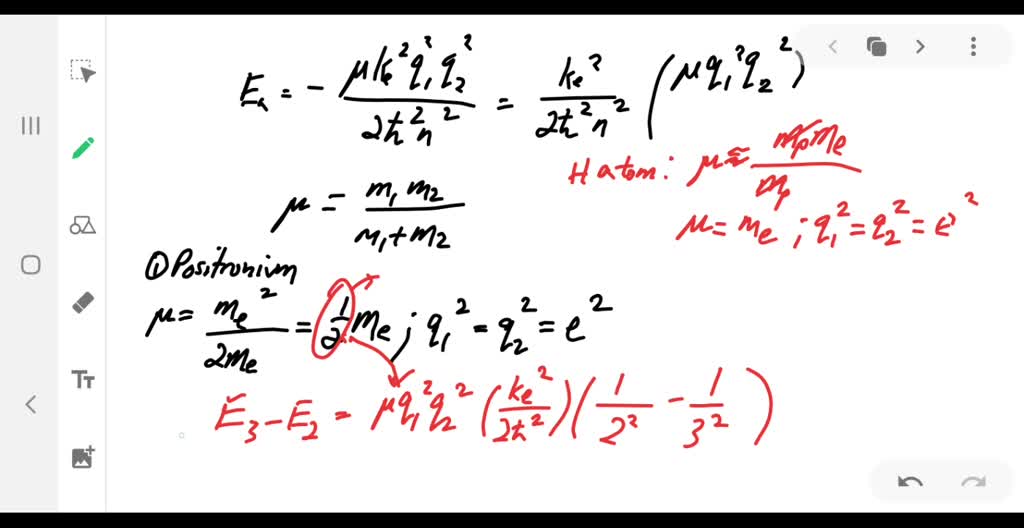 Eₙ = - μkₑ²q₁²q₂² / 2ħ²n² = kₑ² / 2ħ²n² (μq₁²q₂²)
H atom: μ ≈ mₚmₑ / mₚ
μ = m₁m₂ / m₁+m₂
μ = mₑ ; q₁² = q₂² = e²
① Positronium
μ = mₑ² / 2mₑ = 1/2 mₑ ; q₁² = q₂² = e²
E₃ - E₂ = μq₁²q₂² (kₑ² / 2ħ²)(1/2² - 1/3²)
Tт